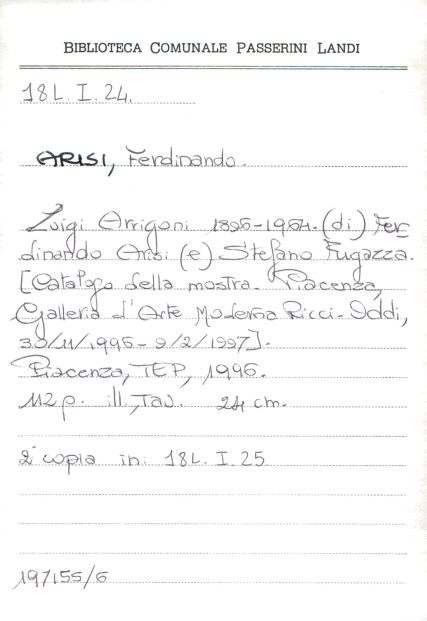 BIBLIOTECA COMUNALE PASSERINI LANDI
18L. I. 24.
ARISI, Ferdinando.
Luigi Arrigoni 1896-1964. (di) Fer=
dinando Arisi (e) Stefano Fugazza.
[Catalogo della mostra. Piacenza,
Galleria d'Arte Moderna Ricci-Oddi,
30/11/1996 - 9/2/1997].
Piacenza, TEP, 1996.
112 p. ill., Tav. 24 cm.
2ª copia in: 18L. I. 25
197155/6